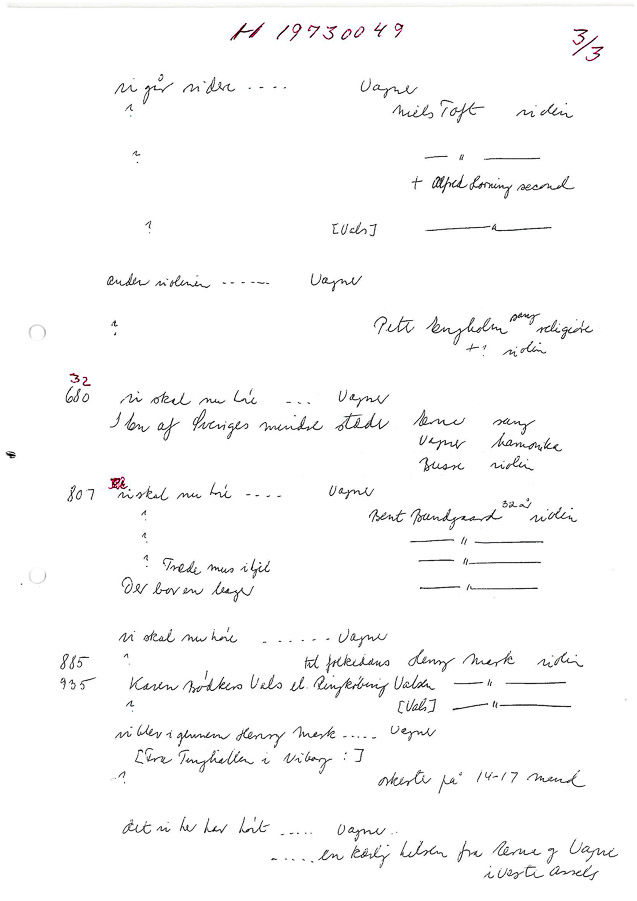 H 19730049 3/3
vi går videre .... Vagner
? Niels Toft violin
? — " —
+ Alfred Lorning second
? [Vals] — " —
under violinen ...... Vagner
? Petr Engholm sang religiøse
+ ? violin
32
680 vi skal nu høre ... Vagner
I en af Sveriges mindre städer Erne sang
Vagner harmonika
Busse violin
807 vi skal nu høre .... Vagner
? Bent Bundgaard 32 år violin
? — " —
? Træde mus ihjel — " —
Der bor en bager — " —
vi skal nu høre ...... Vagner
885 ? til folkedans Henry Mark violin
935 Karen Bødkers Vals el. Ringkøbing Valsen — " —
? [Vals] — " —
vi blev igennem Henry Mark ..... Vagner
[Fra Tinghallen i Viborg :]
? orkester på 14-17 mand
det vi her har hørt ..... Vagner ..
..... en kærlig hilsen fra Erne og Vagne
i Vester Assels